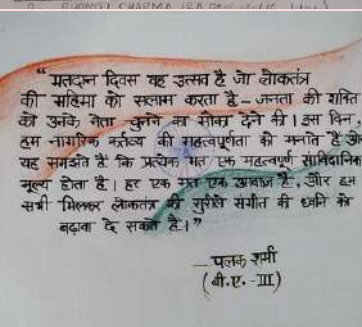 "मतदान दिवस वह उत्सव है जो लोकतंत्र
की महिमा को सलाम करता है – जनता की शक्ति
को उनके नेता चुनने का मौका देने की। इस दिन,
हम नागरिक कर्तव्य की महत्वपूर्णता को मनाते हैं और
यह समझते हैं कि प्रत्येक मत एक महत्वपूर्ण सांविधानिक
मूल्य होता है। हर एक मत एक आवाज है, और हम
सभी मिलकर लोकतंत्र की सुरीले संगीत की ध्वनि को
बढ़ावा दे सकते है।"
– पलक शर्मा
(बी.ए.-III)